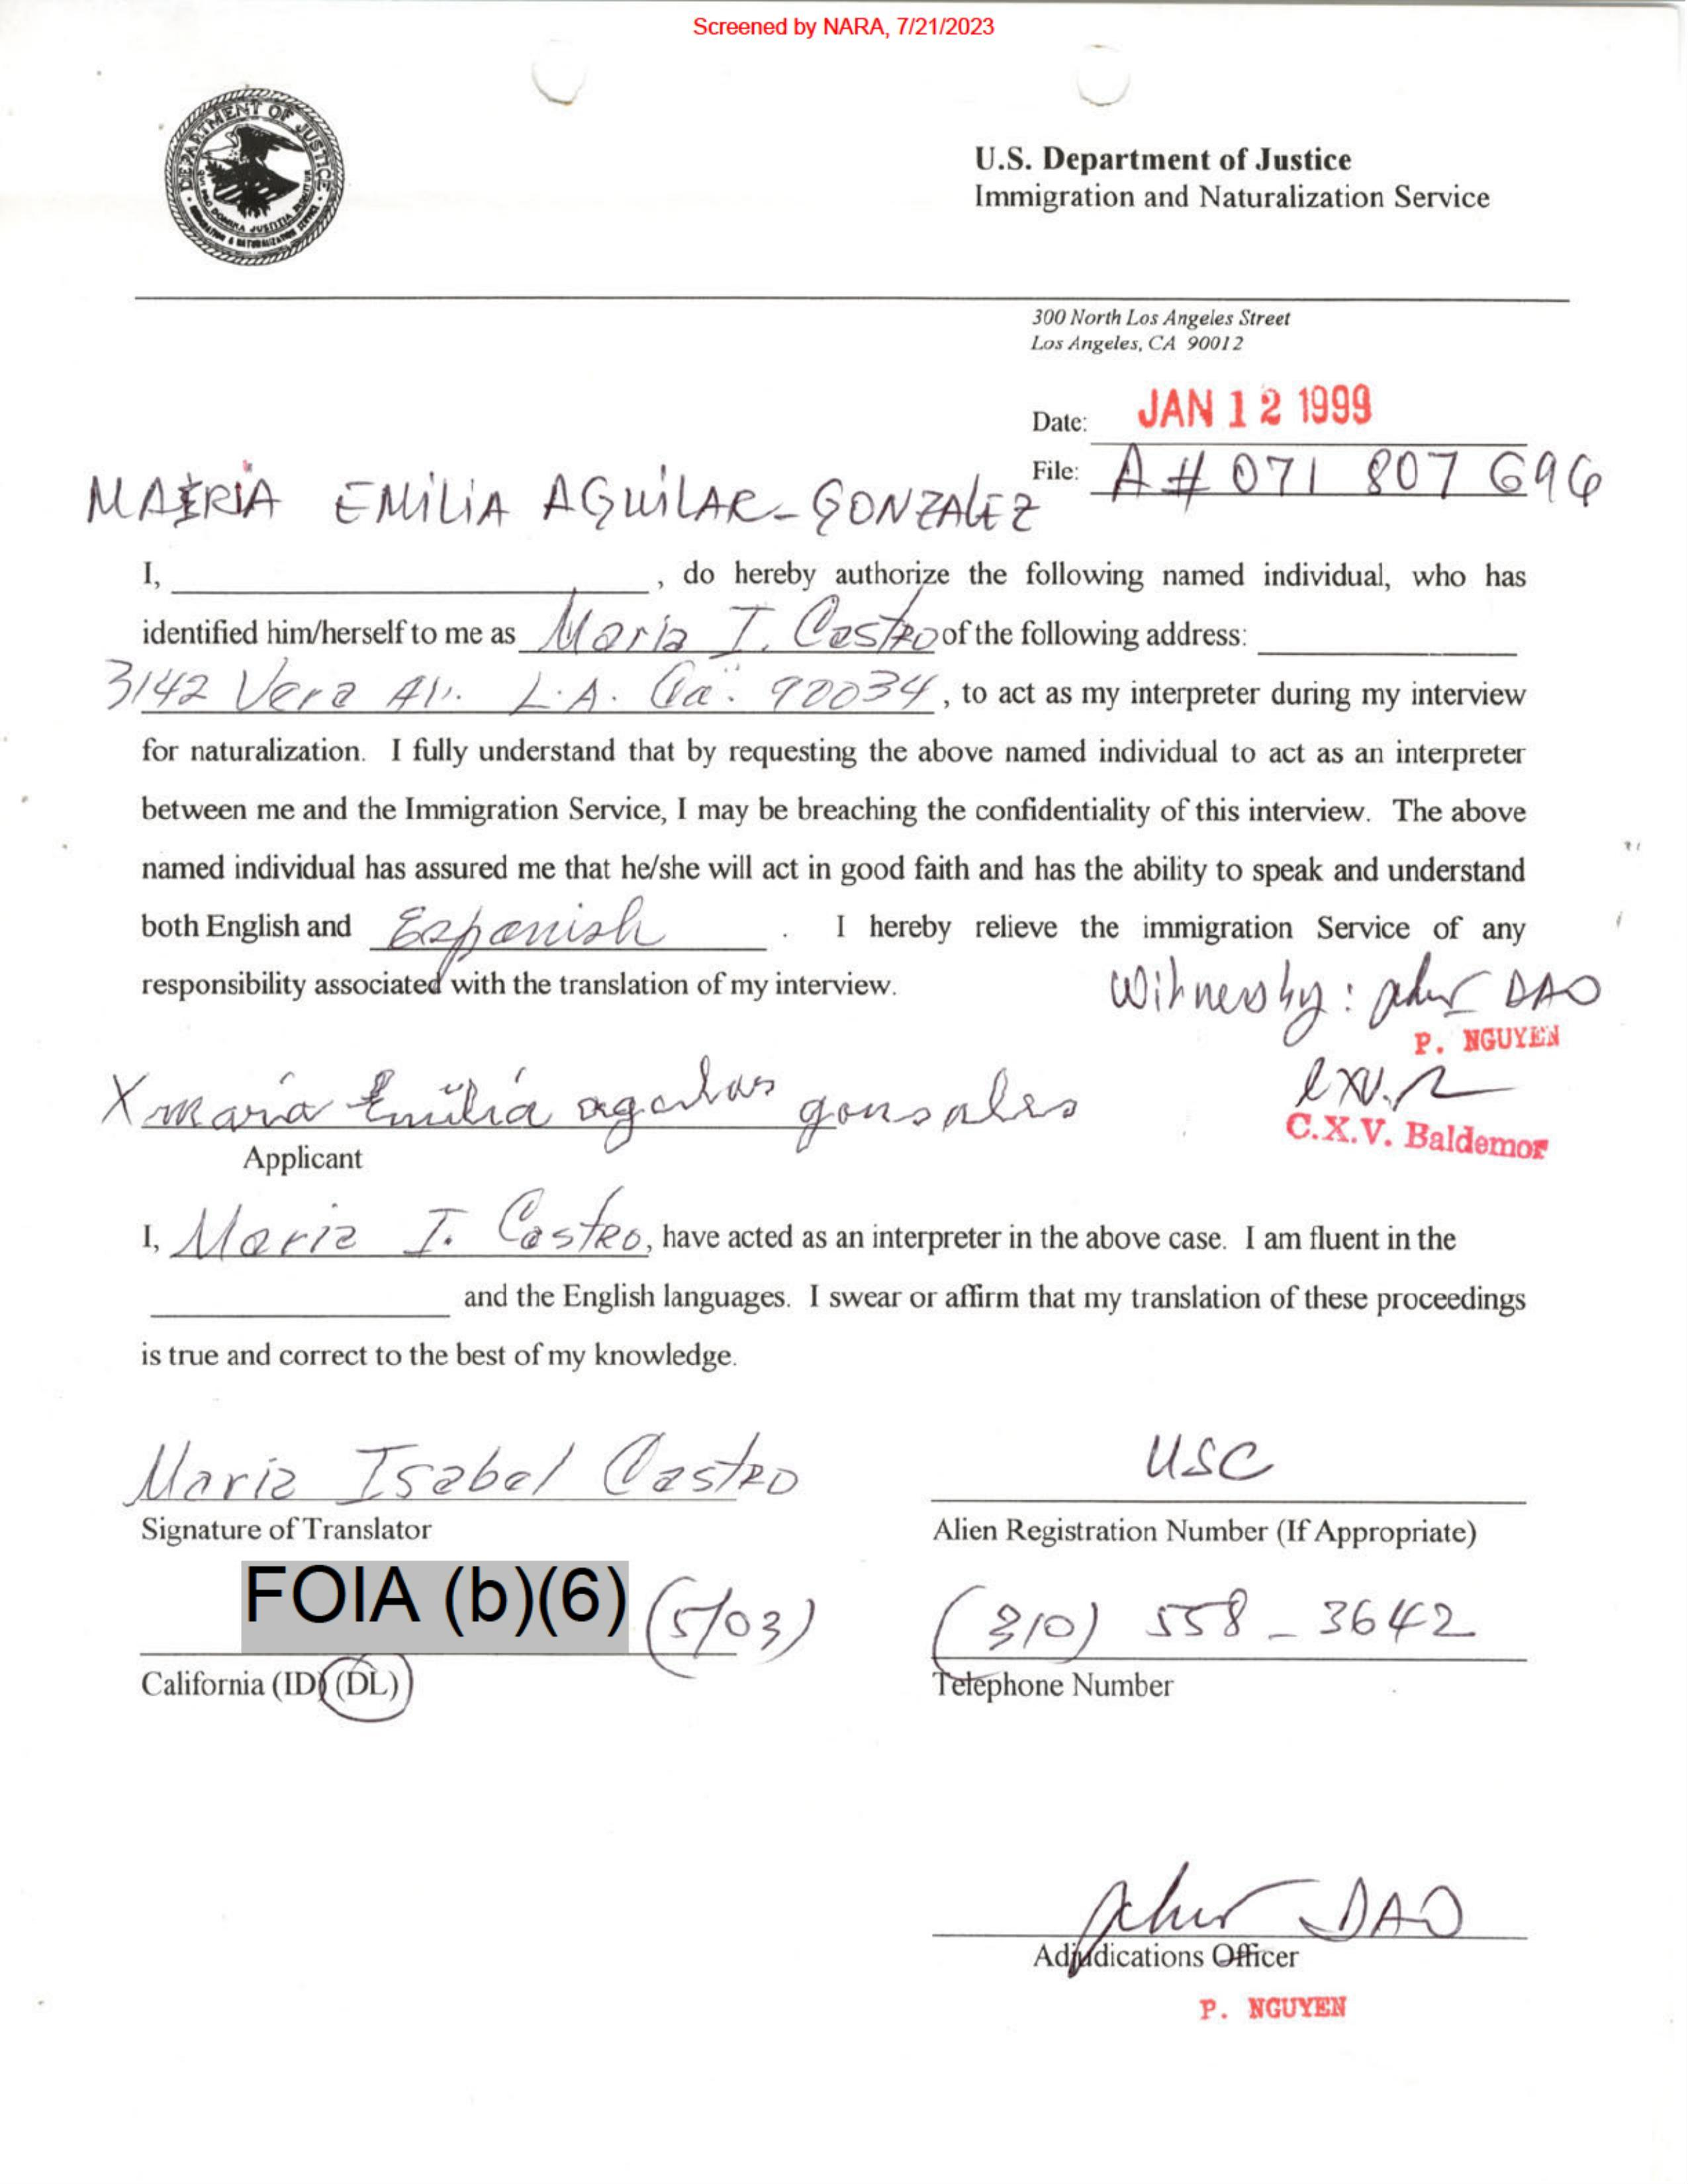 Screened by NARA, 7/21/2023
DEPARTMENT OF JUSTICE
U.S. Department of Justice
Immigration and Naturalization Service
300 North Los Angeles Street
Los Angeles, CA 90012
Date: JAN 12 1999
File: A# 071 807 696
EMILIA AGUILAR-GONZALEZ
I, , do hereby authorize the following named individual, who has
identified him/herself to me as Maria I. Castro of the following address:
3142 Vera Av. L.A. Ca. 90034, to act as my interpreter during my interview
for naturalization. I fully understand that by requesting the above named individual to act as an interpreter
between me and the Immigration Service, I may be breaching the confidentiality of this interview. The above
named individual has assured me that he/she will act in good faith and has the ability to speak and understand
both English and Espanish . I hereby relieve the immigration Service of any
responsibility associated with the translation of my interview.
Witness by: DAO
P. NGUYEN
C.X.V. Baldemor
X maria Emilia gonsales
Applicant
I, Maria I. Castro, have acted as an interpreter in the above case. I am fluent in the
and the English languages. I swear or affirm that my translation of these proceedings
is true and correct to the best of my knowledge.
Maria Isabel Castro
USC
Signature of Translator
Alien Registration Number (If Appropriate)
FOIA (b)(6) (5/03)
(310) 558-3642
California (ID) (DL)
Telephone Number
DAO
Adjudications Officer
P. NGUYEN